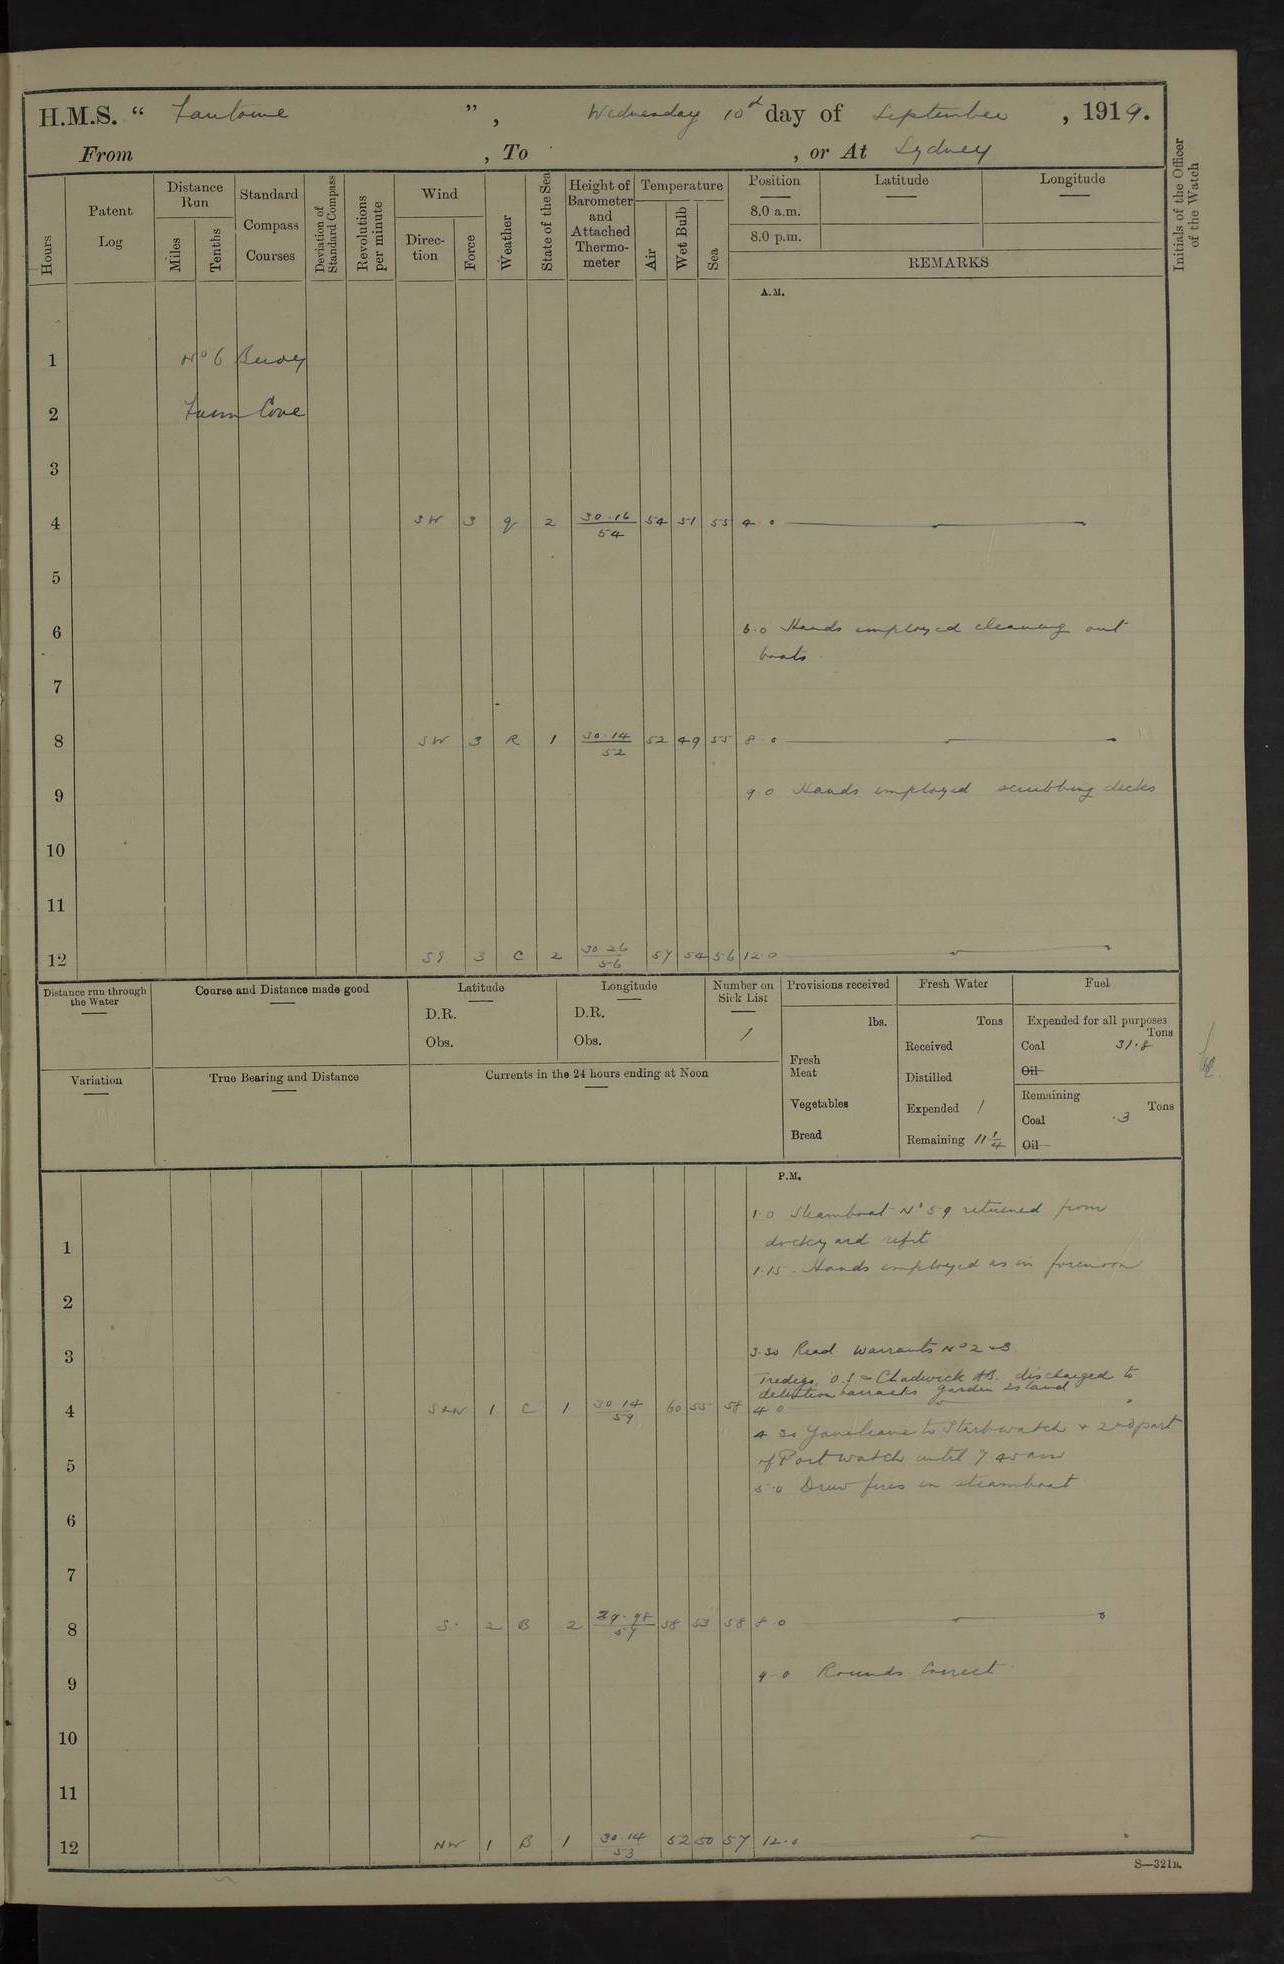 H.M.S. “ Fantome ”, Wednesday 10th day of September, 1919.
From , To , or At Sydney
Hours
Patent Log
Distance Run
Miles
Tenths
Standard Compass Courses
Deviation of Standard Compass
Revolutions per minute
Wind
Direction
Force
Weather
State of the Sea
Height of Barometer and Attached Thermometer
Temperature
Air
Wet Bulb
Sea
Position
Latitude
Longitude
8.0 a.m.
8.0 p.m.
REMARKS
Initials of the Officer of the Watch
A.M.
1 No 6 Buoy
2 Farm Cove
3
4 SW 3 q 2 30.16/54 54 51 55 4.0
5
6 6.0 Hands employed cleaning out
boats
7
8 SW 3 R 1 30.14/52 52 49 55 8.0
9 9.0 Hands employed scrubbing decks
10
11
12 SE 3 C 2 30.26/56 57 54 56 12.0
Distance run through the Water
Course and Distance made good
Latitude
D.R.
Obs.
Longitude
D.R.
Obs.
Number on Sick List
1
Provisions received
lbs.
Fresh Meat
Vegetables
Bread
Fresh Water
Tons
Received
Distilled
Expended 1
Remaining 11 1/4
Fuel
Expended for all purposes
Tons
Coal 31.8
Oil
Remaining
Tons
Coal .3
Oil
Variation
True Bearing and Distance
Currents in the 24 hours ending at Noon
P.M.
1.0 Steamboat No 59 returned from
1 dockyard refit
1.15 Hands employed as in forenoon
2
3 3.30 Read warrants No 2 & 3
O.S. & Chadwick AB. discharged to
detention barracks Garden Island
4 SSW 1 C 1 30.14/59 60 55 58 4.0
4.30 Gave leave to Starb watch & 2nd part
5 of Port watch until 7.45 am
5.0 Drew fires in steamboat
6
7
8 S. 2 B 2 29.98/57 58 53 58 8.0
9 9.0 Rounds Correct
10
11
12 NW 1 B 1 30.14/53 52 50 57 12.0
S—321B.